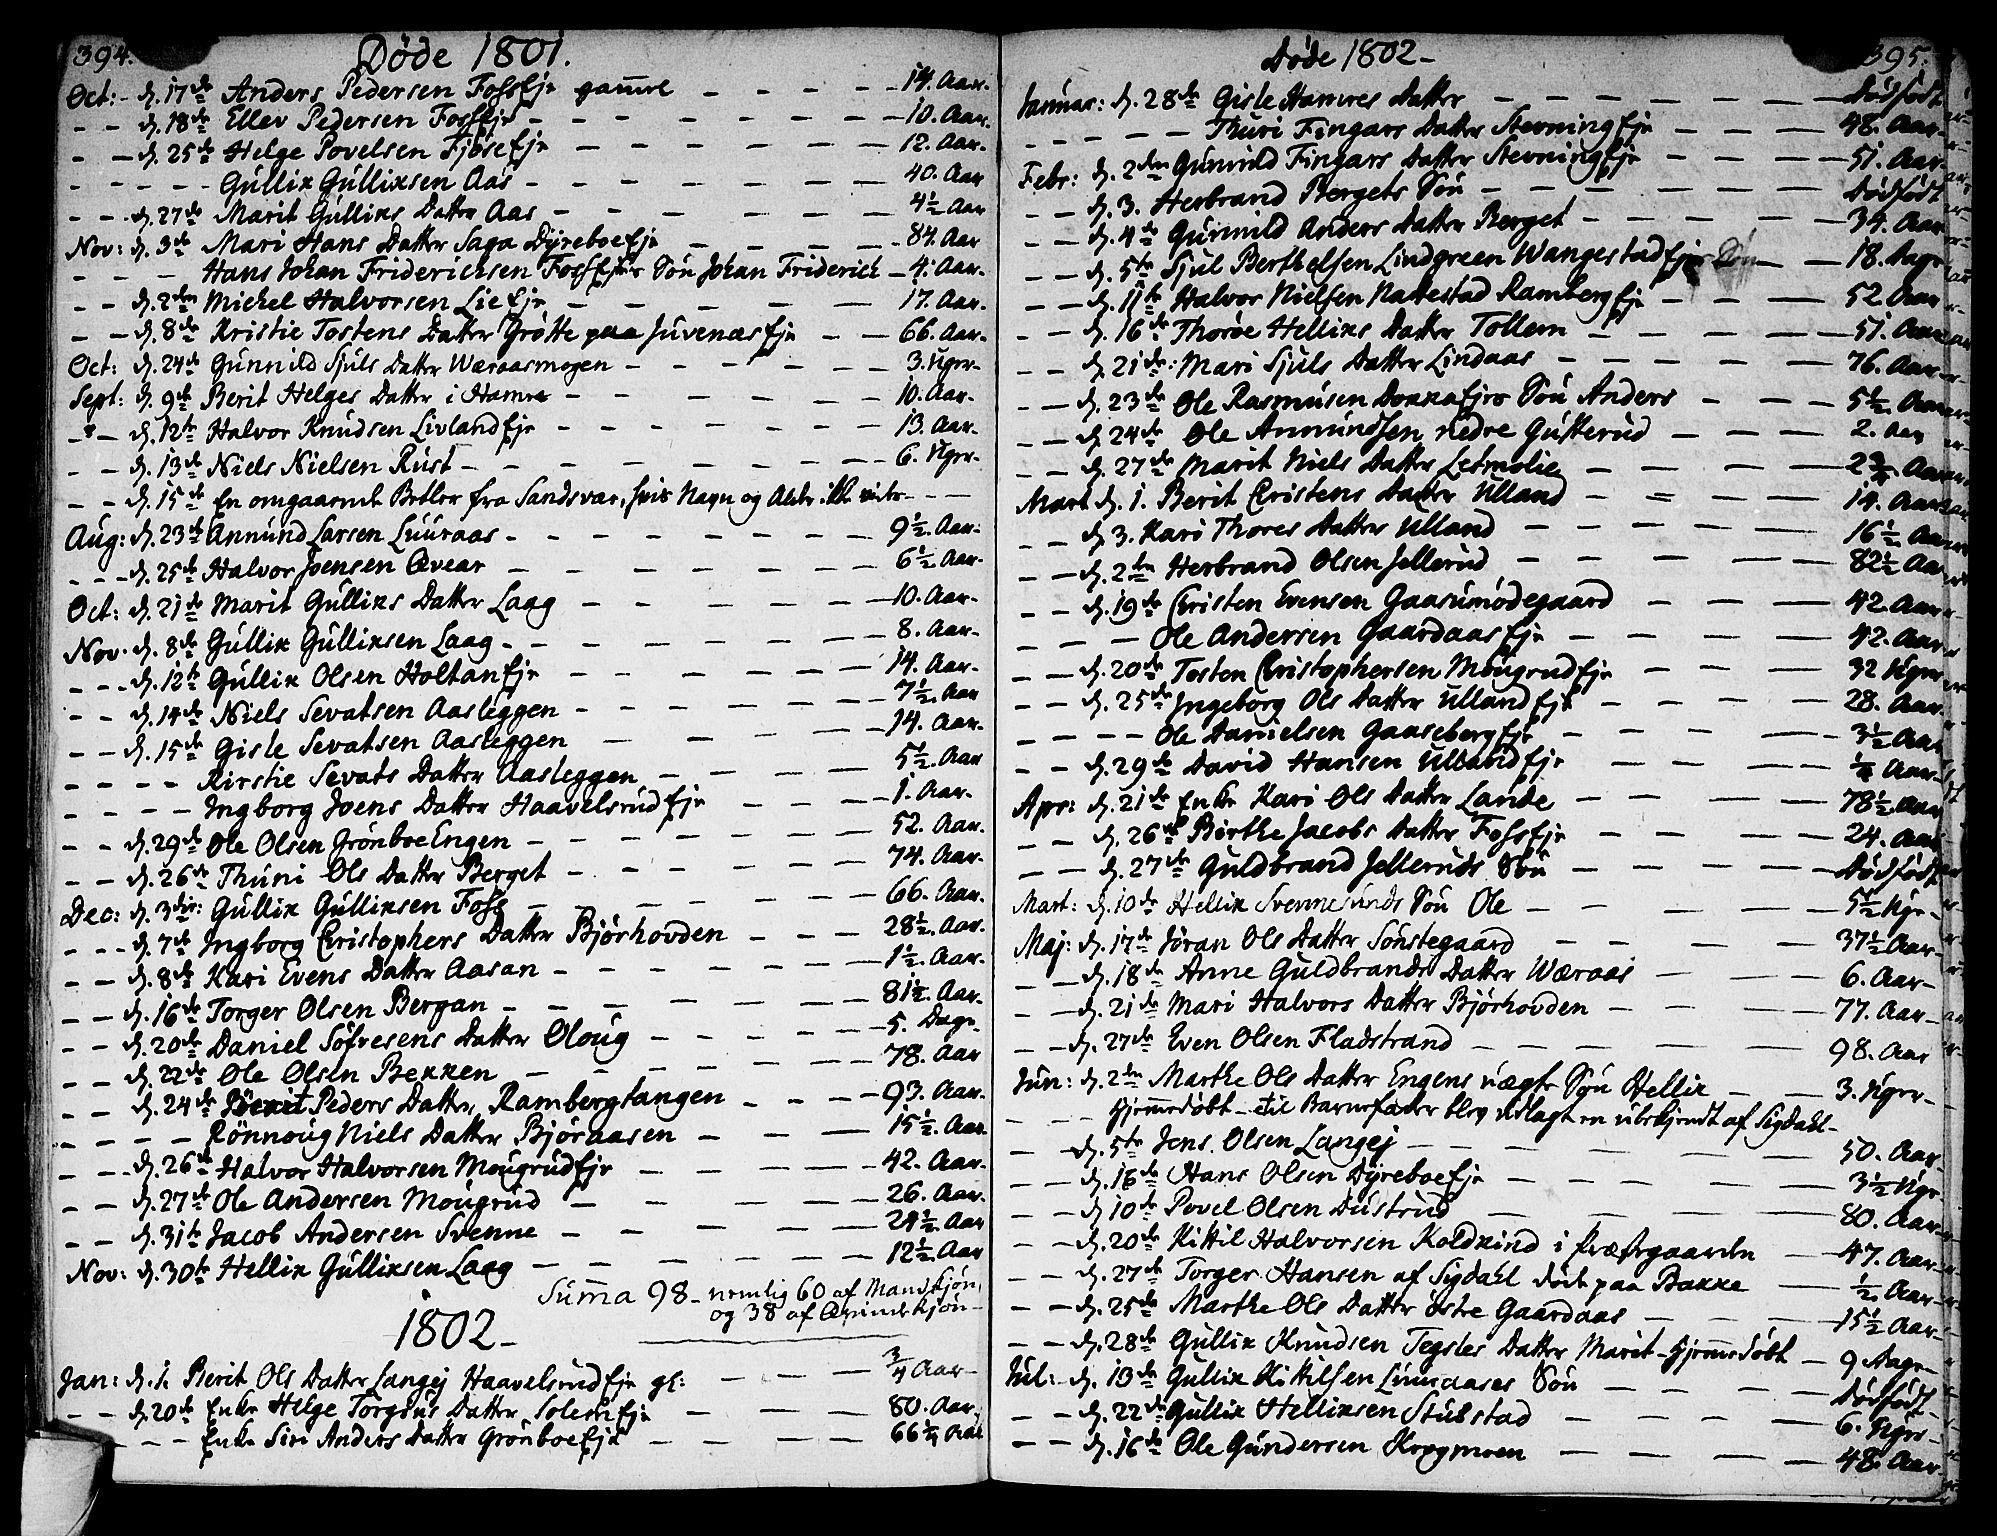 394.
Døde 1801.
Oct: - d. 17de Anders Pedersen FossEje gammel - - - - 14. Aar.
- - d. 18de Ellev Pedersen FossEje - - - - 10. Aar.
- - d. 25de Helge Povelsen FjøseEje - - - - 12. Aar.
- - - - Gullik Gulliksen Aas - - - - 40. Aar
- - d. 27de Marit Gulliks Datter Aas - - - - 4½ Aar
Nov: d. 3de Mari Hans Datter Saga DyreboeEje - - - - 84. Aar
- - - Hans Johan Friderichsen FossEjes Søn Johan Friderich - 4. Aar.
- - d. 2den Michel Halvorsen LieEje - - - - 17. Aar.
- - d. 8de Kristie Tostens Datter Grøtte paa JuvenæsEje - - 66. Aar.
Oct: d. 24de Gunnild Sjuls Datter Wæraasmogen - - - - 3. Uger.
Sept: d. 9de Berit Helges Datter i Hamre - - - - 10. Aar.
- - d. 12te Halvor Knudsen LivlandEje - - - - 13. Aar.
- - d. 13de Niels Nielsen Rust - - - - 6. Uger.
- - d. 15de En omgaaende Betler fra Sandsvær, hvis Navn og Alder ikke vides - - -
Aug: d. 23de Anmund Larsen Luuraas - - - - 9½. Aar.
- - - d. 25de Halvor Joensen Qvear - - - - 6½. Aar.
Oct: d. 21de Marit Gulliks Datter Laag - - - - 10. Aar.
Nov. d. 8de Gullik Gulliksen Laag - - - - 8. Aar.
- - - d. 12te Gullik Olsen HoltanEje - - - - 14. Aar.
- - d. 14de Niels Sevatsen Aasleggen - - - - 7½. Aar
- - d. 15de Gisle Sevatsen Aasleggen - - - - 14. Aar.
- - - - Kirstie Sevats Datter Aasleggen - - - - 5½. Aar
- - - - Ingborg Joens Datter HaavelsrudEje - - - - 1. Aar.
- - d. 29de Ole Olsen GrønboeEngen - - - - 52. Aar.
- - d. 26de Thuni Ols Datter Berget - - - - 74. Aar.
Dec: d. 3die: Gullik Gulliksen Foss - - - - 66. Aar.
- - - d. 7de Ingborg Cristophers Datter Bjørhovden - - - 28½. Aar.
- - d. 8de Kari Evens Datter Aasan - - - - 1½. Aar.
- - d. 16de Torger Olsen Bergan - - - - 81½. Aar.
- - d. 20de Daniel Søfresens Datter Oloug - - - - 5. Dage.
- - d. 22de Ole Olsen Bekken - - - - 78. Aar
- - d. 24de Berit Peders Datter Rambergtangen - - - - 93. Aar.
- - - - Rønnoug Niels Datter Bjøraasen - - - - 15½. Aar.
- - d. 26de Halvor Halvorsen MougrudEje - - - - 42. Aar.
- - d. 27de Ole Andersen Mougrud - - - - 26. Aar.
- - d. 31te Jacob Andersen Svenne - - - - 24½. Aar
Nov: d. 30te Hellik Gulliksen Laag - - - - 12½. Aar
Summa 98 - nemlig 60 af Mandkjøn,
og 38 af Qvindekjøn -
1802 -
Jan: d. 1. Berit Ols Datter Langej HaavelsrudEje gl: - - - ¾ Aar -
- - d. 20de Enke Helge Torgrus Datter SolemEje - - - 80. Aar,
- - - Enke Siri Anders Datter GrønboeEje - - - 66¼ Aar
395.
Døde 1802 -
Januar: d. 28de Gisle Hamres Datter - - - - Dødfødt
- - - - Thuri Fingars Datter StevningEje - - - 48. Aar -
Febr: d. 2den Gunnild Fingars Datter StevningEje - - - 51. Aar -
- - d. 3. Herbrand Bergets Søn - - - - Dødfødt
- - d. 4de Gunnild Anders Datter Berget - - - - 34. Aar
- - d. 5te Sjul Berthelsen Lindgreen WangestadEjes Søn - 18. Dage
- - d. 11te Halvor Nielsen Nattestad RambergEje - - - 52 Aar
- - d. 16de Thoroe Helliks Datter Tollem - - - - 51. Aar
- - d. 21de: Mari Sjuls Datter Lindaas - - - - 76. Aar
- - d. 23de Ole Rasmusen DokkaEjes Søn Anders - - - 5½. Aar
- - d. 24de Ole Anmundsen nedre Gusterud - - - 2. Aar
- - d. 27de Marit Niels Datter Letmolie - - - - Aar
Mart d. 1. Berit Cristens Datter Ulland - - - - 14. Aar
- - d. 3. Kari Thores Datter Ulland - - - - 16½ Aar
- - d. 2den Herbrand Olsen Jellerud - - - - 82½ Aar
- - d. 19de Cristen Evensen Gaasumødegaard - - - 42. Aar
- - - Ole Andersen GaardaasEje - - - - 42. Aar
- - d. 20de Tosten Cristophersen MougrudEje - - - 32 Uger
- - d. 25de Ingeborg Ols Datter UllandEje - - - - 28. Aar.
- - - - Ole Danielsen GaasebergEje - - - - 3½ Aar
- - d. 29de David Hansen UllandEje - - - - Aar
Apr: d. 21de Enke Kari Ols Datter Lande - - - - 78½. Aar
- - d. 26de Birthe Jacobs Datter FossEje - - - - 24. Aar
- - d. 27de Guldbrand Jelleruds Søn - - - - Dødfødt
Mart: d. 10de Hellik Svennesunds Søn Ole - - - - 5½ Uge -
Maj: d. 17de Jøran Ols Datter Sønstegaard - - - - 37½ Aar -
- - d. 18de Anne Guldbrands Datter Wæraas - - - - 6. Aar -
- - d. 21de Mari Halvors Datter Bjørhovden - - - - 77. Aar -
- - d. 27de Even Olsen Fladstrand - - - - 98. Aar
Jun: d. 2den Marthe Ols Datter Engens uægte Søn Hellik - - 3. Uger -
- - - Hjemmedøbt - til Barnefader blev udlagt en ubekjendt af Sigdahl -
- - d. 5te Jens Olsen Langej - - - - 50. Aar -
- - d. 16de Hans Olsen DyreboeEje - - - - 3½ Uge
- - d. 10de Povel Olsen Dustrud - - - - 80. Aar -
- - d. 20de Kittil Halvorsen Koldkind i Præstgaarden - - 47. Aar -
- - d. 27de Torger Hansen af Sigdahl død paa Bakke - - ½. Aar -
- - d. 25de Marthe Ols Datter østre Gaardaas - - - 15½ Aar -
- - d. 28de Gullik Knudsen Tegsles Datter Marit - Hjemmedøbt - 9 Dage -
Jul: d. 13de Gullik Kittilsen Lunaases Søn - - - - Dødfødt -
- - d. 22de Gullik Helliksen Stubstad - - - - 6. Uger -
- - d. 16de Ole Gundersen Kragmoen - - - - 48. Aar -